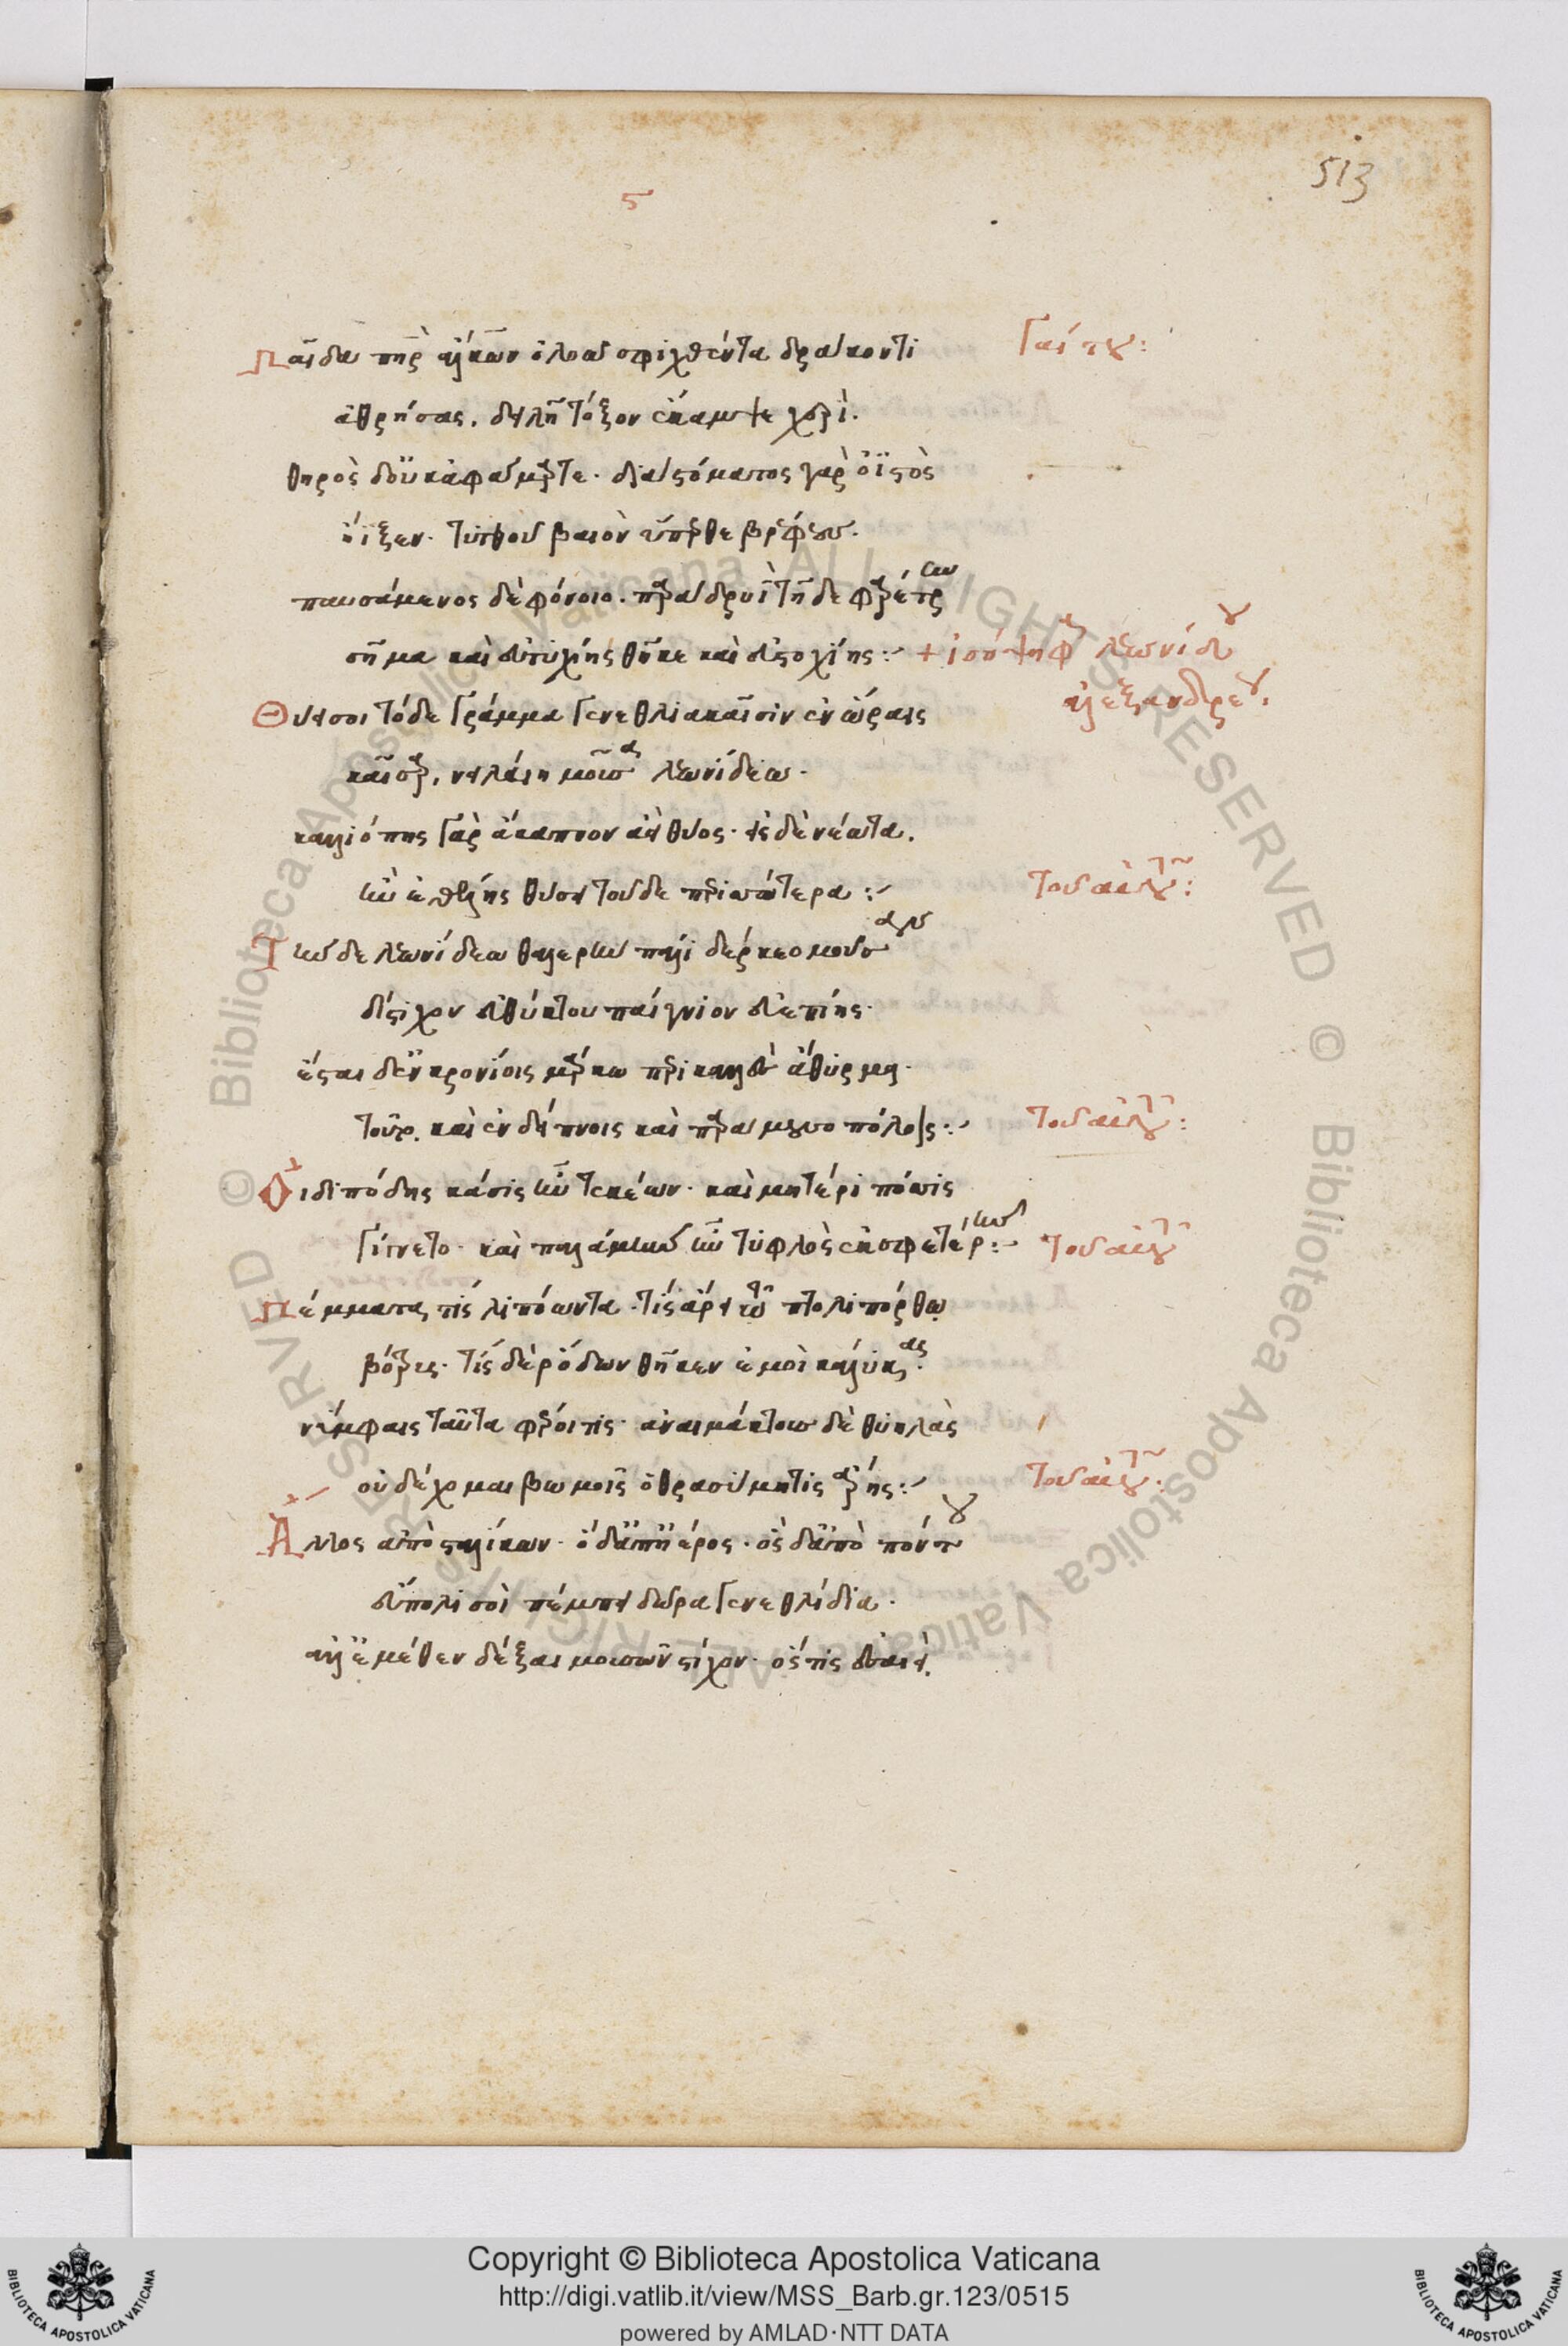 513
ϛ
Παῖδα πατὴρ ἄλκων ὀλοῶ σφιχθέντα δράκοντι
Γαίτου:
ἀθρήσας, δειλῆ τόξον ἔκαμψε χερί.
θηρὸς δ' οὐκ ἀφάμαρτε· διὰ στόματος γὰρ ὀϊστὸς
ἤιξεν· τυτθοῦ βαιὸν ὕπερθε βρέφους.
παυσάμενος δὲ φόνοιο. παρὰ δρυῒ τῆδε φαρέτρην
σῆμα καὶ εὐτυχίης θῆκε καὶ εὐστοχίης:
+ ἰσόψηφα λεωνίδου
ἀλεξανδρέου.
Θύει σοι τόδε γράμμα γενεθλιακαῖσιν ἐν ὥραις
καῖσαρ, νειλαίη μοῦσα λεωνίδεω.
καλλιόπης γὰρ ἄκαπνον ἀεὶ θύος· εἰς δὲ νέωτα.
ἢν ἐθέλης θύσει τοῦδε περισσότερα:
Τοῦ αὐτοῦ:
Τὴν δε λεωνίδεω θαλερὴν πάλι δέρκεο μοῦσαν
δίστιχον εὐθύκτου παίγνιον εὐεπίης.
ἔσται δ' ἐν κρονίοις μάρκω περικαλλὲς ἄθυρμα.
τοῦτο, καὶ ἐν δείπνοις καὶ παρὰ μουσοπόλοις:
Τοῦ αὐτοῦ:
Οἰδιπόδης κάσις ἦν τεκέων· καὶ μητέρι πόσις
γίνετο· καὶ παλάμηιν ἦν τυφλὸς ἐκ σφετέρην:
Τοῦ αὐτοῦ
Πέμματα τίς λιπόωντα· τίς ἄρει τῶ πτολιπόρθω
βότρυς· τίς δὲ ῥόδων θῆκεν ἐμοὶ κάλυκας.
νύμφαις ταῦτα φέροι τίς· ἀναιμάκτους δὲ θυηλὰς
οὐ δέχομαι βωμοῖς ὁ θρασύμητις ἄρης:
Τοῦ αὐτοῦ:
Ἄλλος ἀπὸ σταλίκων· ὁ δ' ἀπ' ἠέρος· ὃς δ' ἀπὸ πόντου
εὔπολι σοὶ πέμπει δῶρα γενεθλίδια.
ἀλλ' ἐμέθεν δέξαι μουσῶν στίχον· ὅστις ἐς αἰεὶ,
Copyright © Biblioteca Apostolica Vaticana
http://digi.vatlib.it/view/MSS_Barb.gr.123/0515
powered by AMLAD·NTT DATA